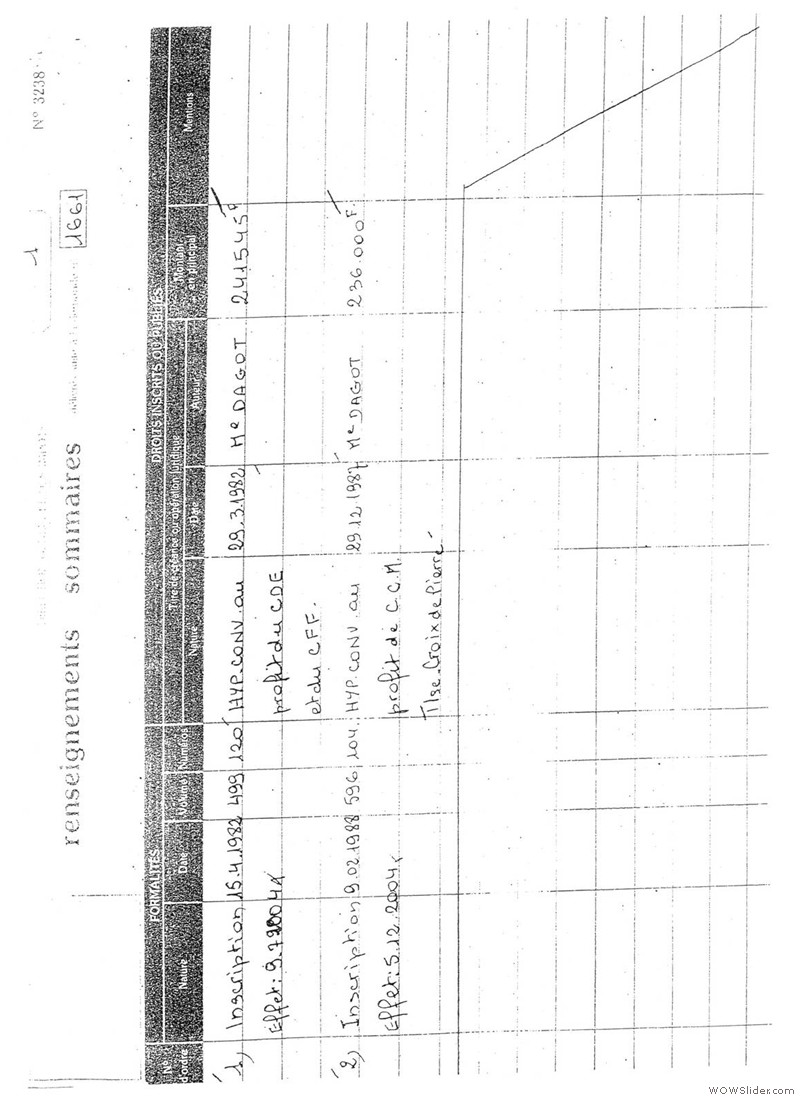 N° 3238
1
renseignements sommaires
1661
FORMALITÉS
DROITS INSCRITS OU PUBLIÉS
N° d'ordre
Nature
Date
Volumes
Numéros
Nature
Date
Montant en principal
Mentions
1) Inscription 15.4.1982 499 120 HYP.CONV. au 29.3.1982 Me DAGOT 241545F
profit du CDE
et du C.F.F.
2) Inscription 9.02.1988 596 104 HYP.CONV. au 29.12.1987 Me DAGOT 236.000F.
Effet: 5.12.2004 profit de C.C.M.
Tlse. Croix de Pierre
WOWSlider.com